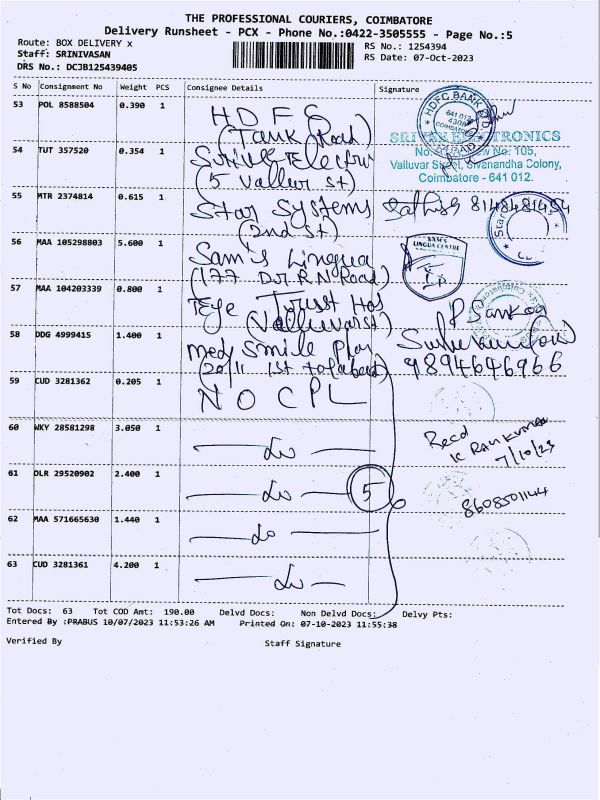 THE PROFESSIONAL COURIERS, COIMBATORE
Delivery Runsheet - PCX - Phone No.:0422-3505555 - Page No.:5
Route: BOX DELIVERY x
RS No.: 1254394
Staff: SRINIVASAN
RS Date: 07-Oct-2023
DRS No.: DCJB125439405
S No Consignment No Weight PCS Consignee Details Signature
53 POL 8588504 0.390 1 HDFC
(Tank Road)
HDFC BANK LTD
641 012
COIMBATORE
54 TUT 357520 0.354 1
(5 Valluvr St)
ELECTRONICS
No. New No: 105,
Valluvar Street, Sivanandha Colony,
Coimbatore - 641 012.
55 MTR 2374814 0.615 1 Star Systems
(2nd St)
Sathish 8148481494
Star
56 MAA 105298803 5.600 1 Sam's Lingua
(177 Dr R N Road)
LINGUA CENTRE
57 MAA 104203339 0.800 1 Eye Trust Hos
(Valluvar st)
58 DDG 4999415 1.400 1 Med Smile
(20/11 1st
9894646966
59 CUD 3281362 0.205 1 NO CPL
60 WKY 28581298 3.050 1 Do
Recd
K RAMKUMAR
7/10/23
61 DLR 29520902 2.400 1 Do 5
8608501144
62 MAA 571665630 1.440 1 Do
63 CUD 3281361 4.200 1 Do
Tot Docs: 63 Tot COD Amt: 190.00 Delvd Docs: Non Delvd Docs: Delvy Pts:
Entered By :PRABUS 10/07/2023 11:53:26 AM Printed On: 07-10-2023 11:55:38
Verified By Staff Signature